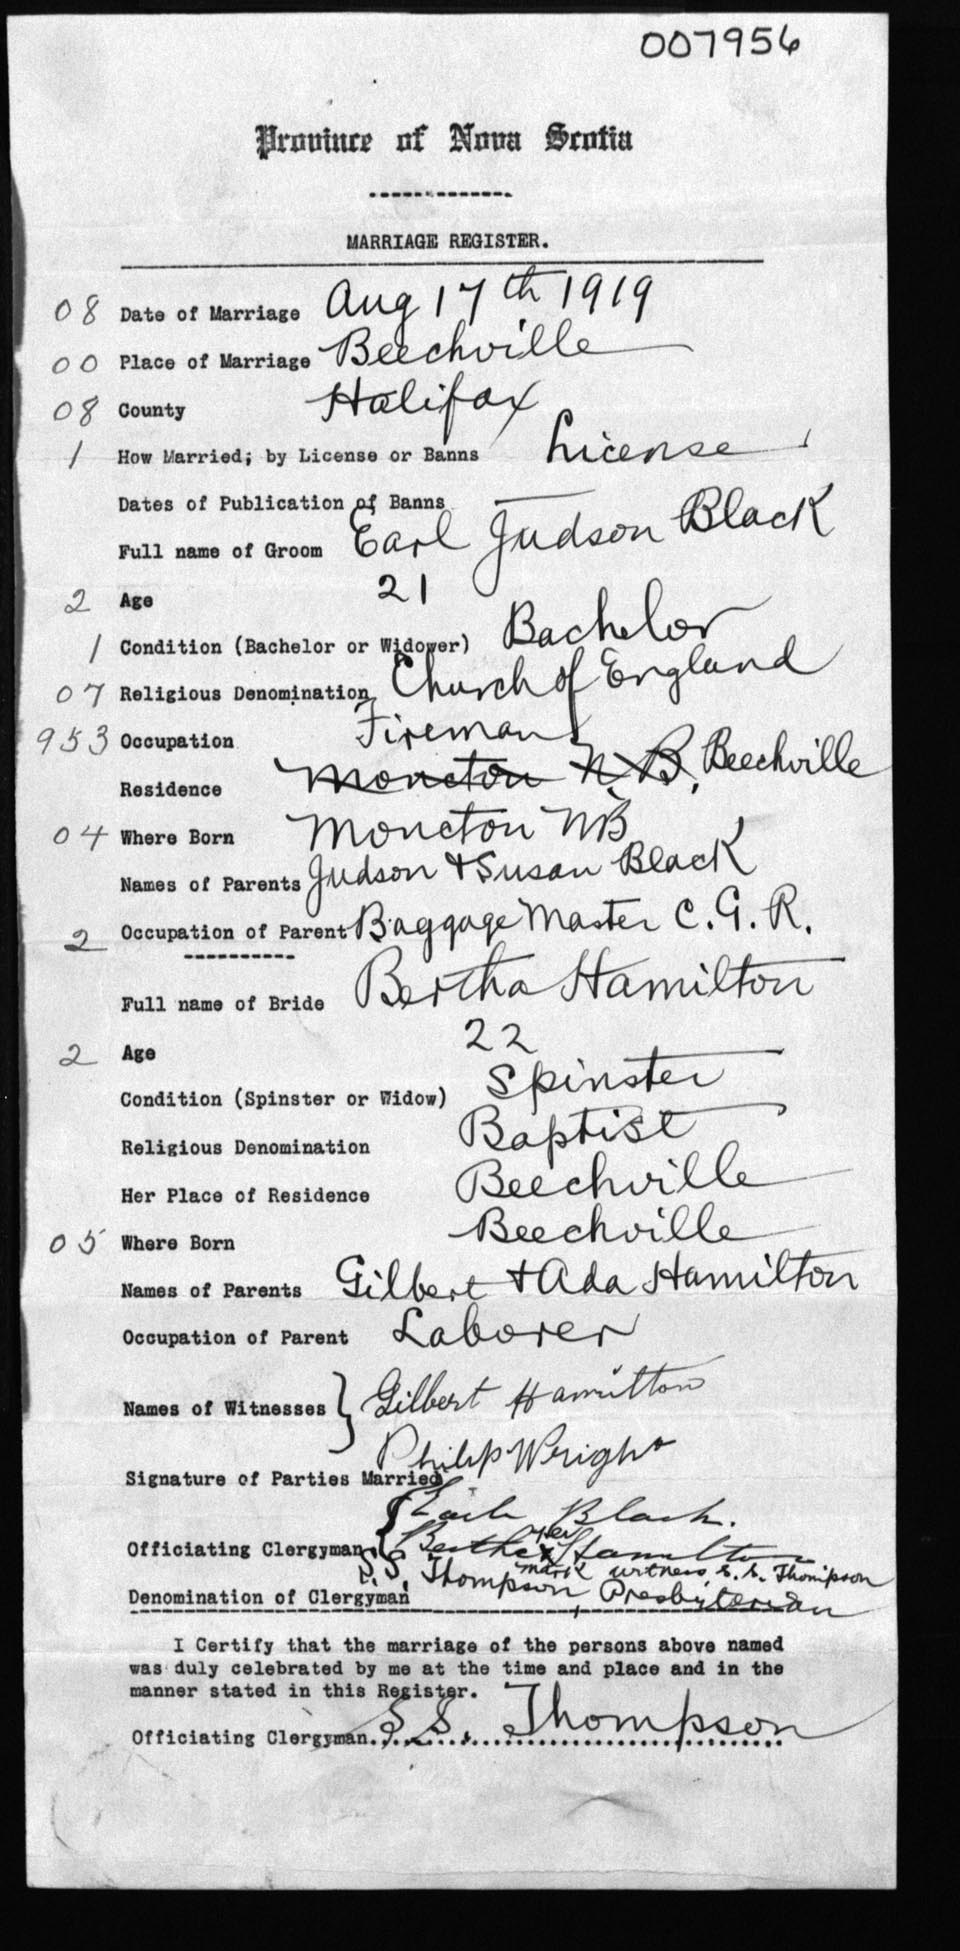 007956
Province of Nova Scotia
MARRIAGE REGISTER.
08 Date of Marriage Aug 17th 1919
00 Place of Marriage Beechville
08 County Halifax
1 How Married; by License or Banns License
Dates of Publication of Banns —
Full name of Groom Earl Judson Black
2 Age 21
1 Condition (Bachelor or Widower) Bachelor
07 Religious Denomination Church of England
953 Occupation Fireman
Residence Moncton N.B, Beechville
04 Where Born Moncton NB
Names of Parents Judson + Susan Black
2 Occupation of Parent Baggage Master C.G.R.
Full name of Bride Bertha Hamilton
2 Age 22
Condition (Spinster or Widow) Spinster
Religious Denomination Baptist
Her Place of Residence Beechville
05 Where Born Beechville
Names of Parents Gilbert + Ada Hamilton
Occupation of Parent Laborer
Names of Witnesses } Gilbert Hamilton
Philip Wright
Signature of Parties Married
{ Earle Black.
her
Officiating Clergyman { Bertha x Hamilton
mark witness, S. S. Thompson
S.S. Thompson, Presbyterian
Denomination of Clergyman
I Certify that the marriage of the persons above named
was duly celebrated by me at the time and place and in the
manner stated in this Register.
Officiating Clergyman S.S. Thompson